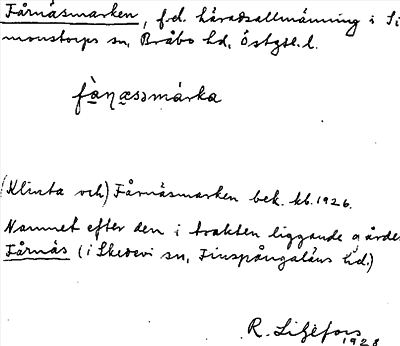 Fårnäsmarken, f.d. häradsallmänning i Si
monstorps sn, Bråbo hd, Östgtl. l.
(Klinta och) Fårnäsmarken bek. kb. 1926.
Namnet efter den i trakten liggande gårde
Fårnäs (i Skedevi sn, Finspångaläns hd.)
R. Liljefors
1928